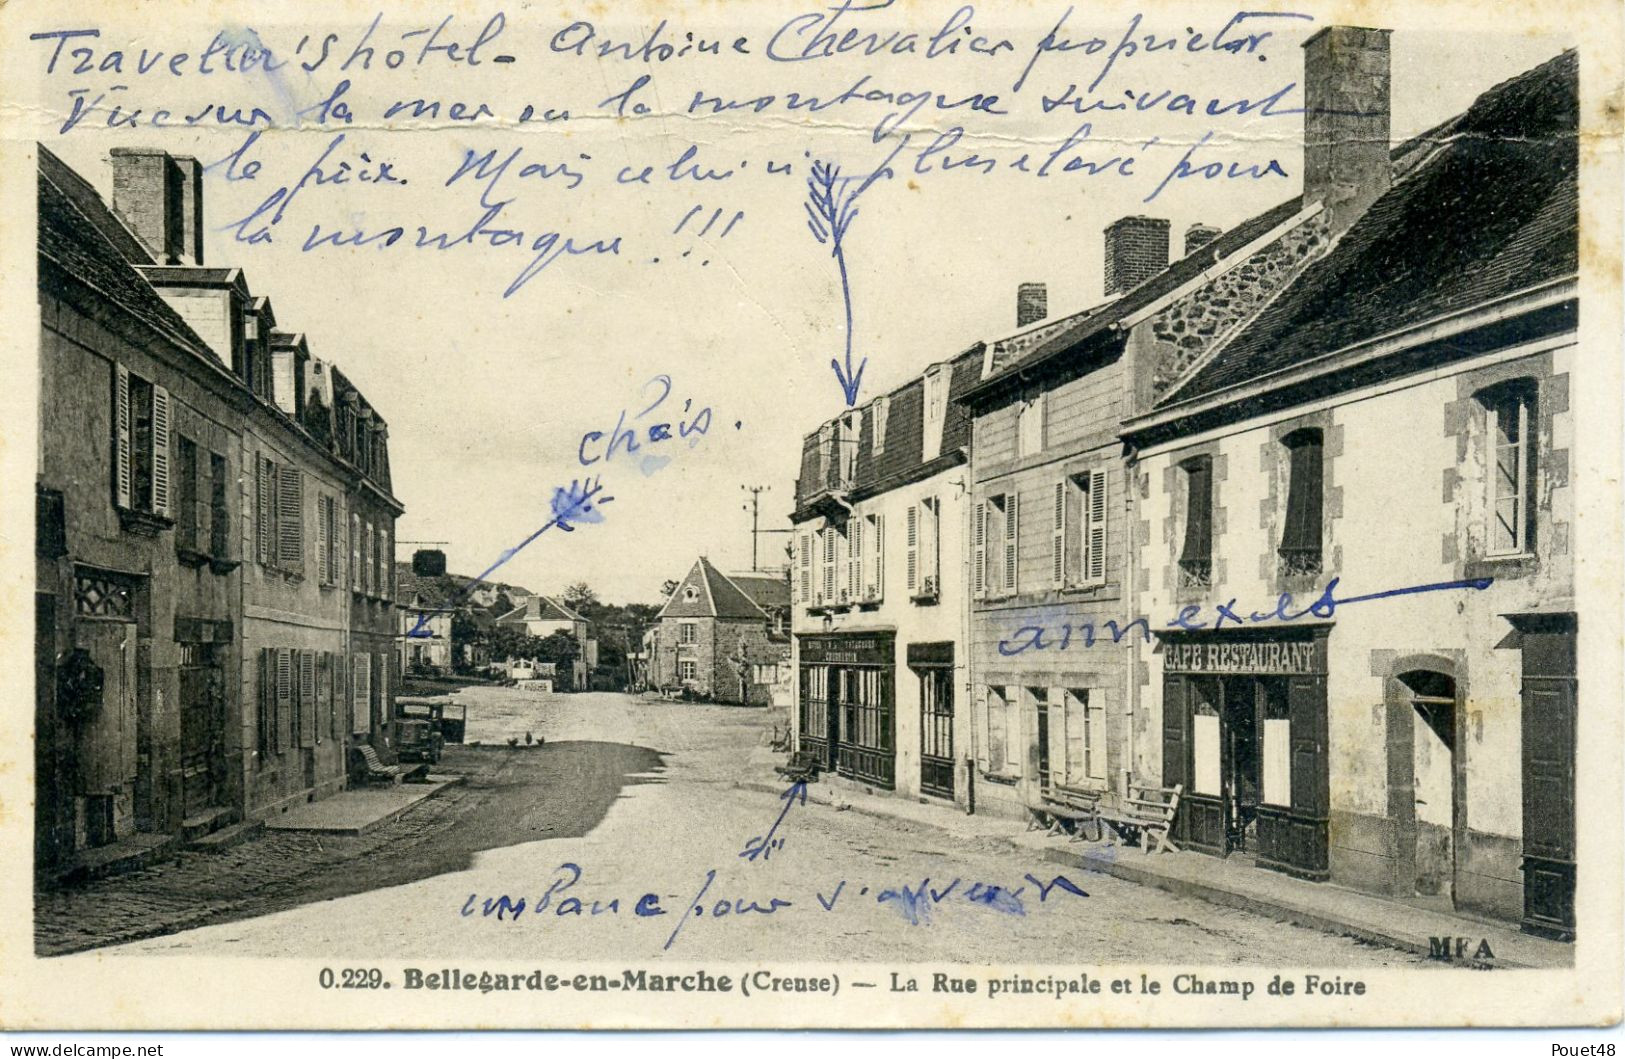 Traveler's hôtel - Antoine Chevalier proprietr.
Vue sur la mer ou la montagne suivant
le prix. Mais celui ci plus elevé pour
la montagne !!!
chais.
annexes
CAFE RESTAURANT
un Banc pour s'asseoir
MFA
O.229. Bellegarde-en-Marche (Creuse) — La Rue principale et le Champ de Foire
Pouet48